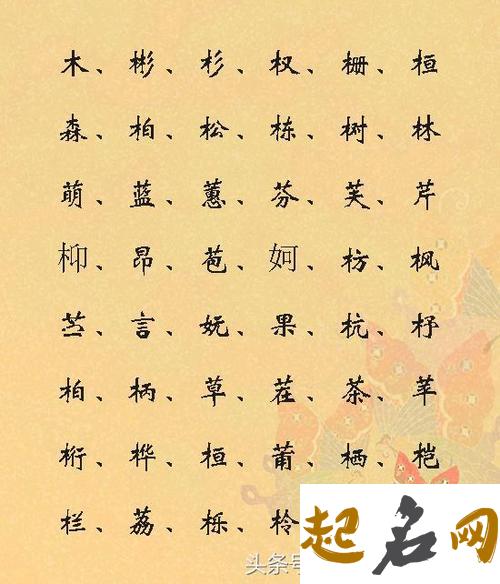 木、彬、杉、杈、栅、桓
森、柏、松、栋、树、林
萌、蓝、蕙、芬、芙、芹
枊、昂、苞、妸、枋、枫
、言、妩、果、杭、杼
柏、柄、草、茬、茶、苹
桁、桦、桓、莆、栖、桤
栏、荔、栎、柃
起名网
头条号